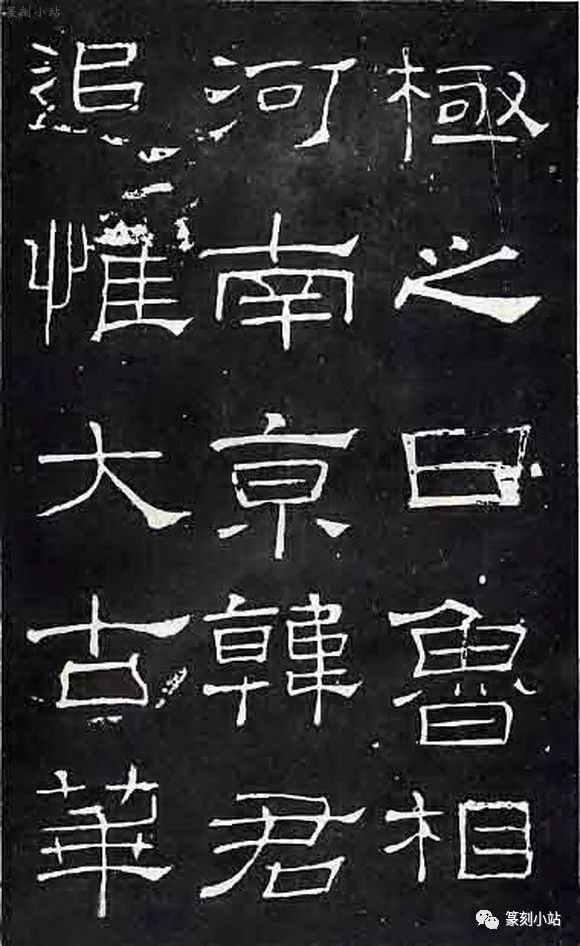 篆刻小站
極之日魯相
河南京韓君
追惟大古華
篆刻小站